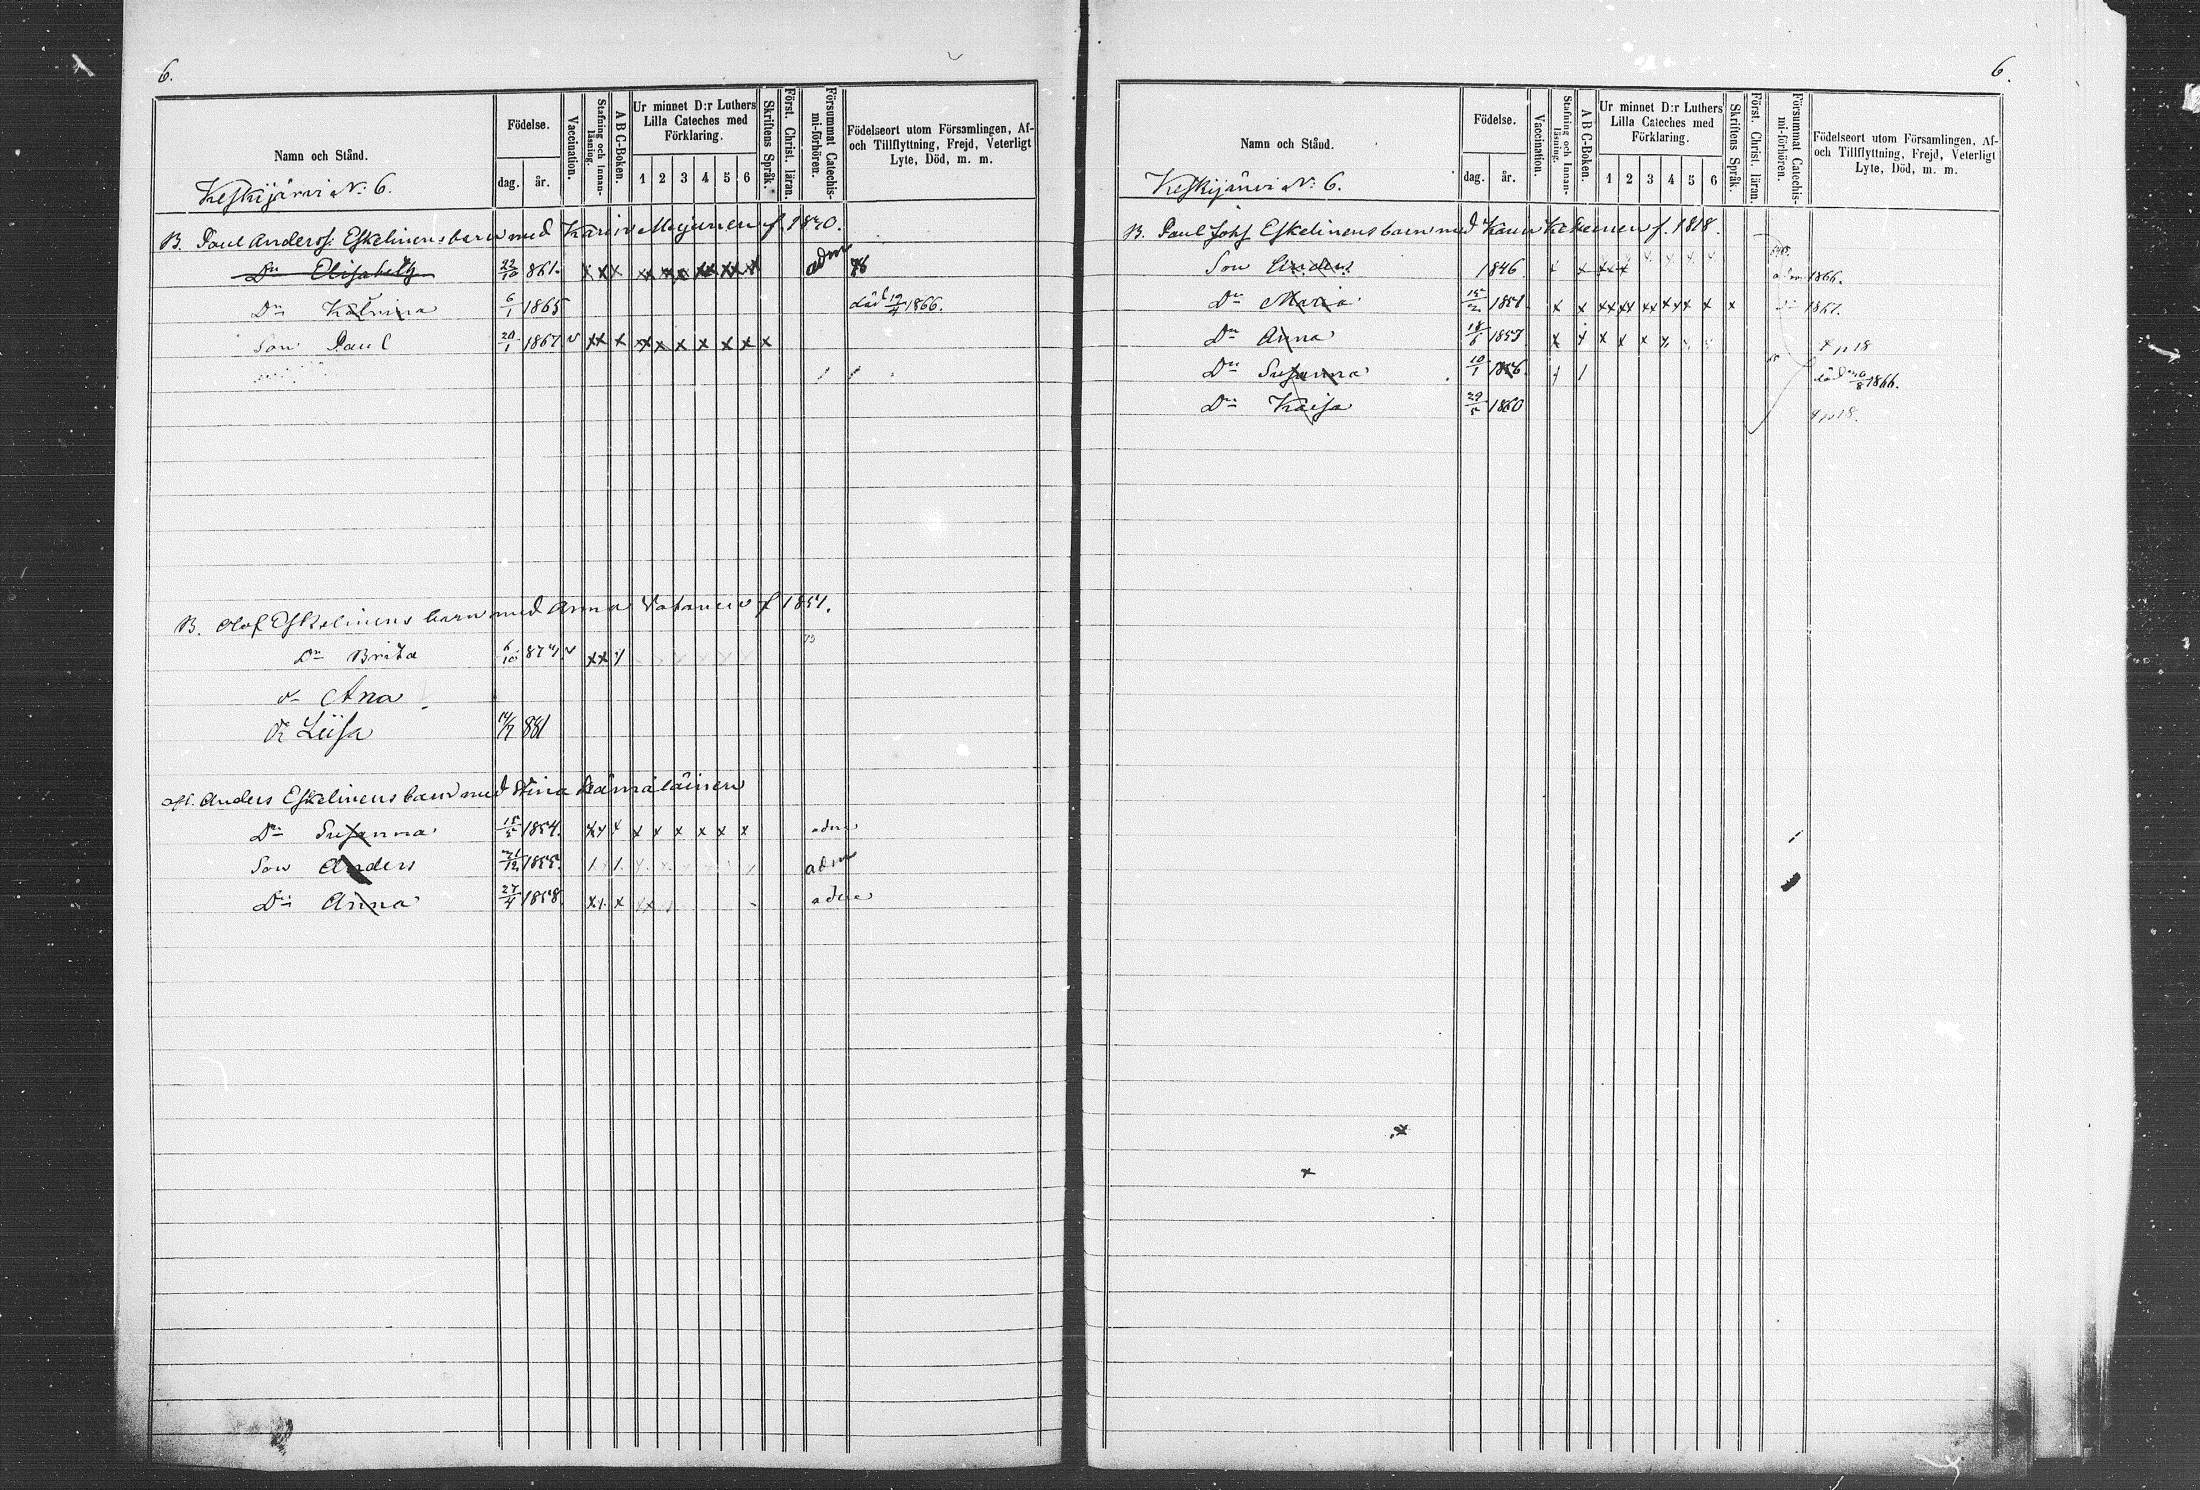 6.
Namn och Stånd.
Födelse.
dag. år.
Vaccination.
Stafning och Innan-läsning.
A B C-Boken.
Ur minnet D:r Luthers Lilla Cateches med Förklaring.
1 2 3 4 5 6
Skriftens Språk.
Först. Christ. läran.
Försummat Catechis-mi-förhören.
Födelseort utom Församlingen, Af- och Tillflyttning, Frejd, Veterligt Lyte, Död, m. m.
Keskijärvi N: 6.
B. Paul Anderss: Eskelinens barn med Karin f. 1840.
Dr Elisabeth 22/10 861. x x x x x x x x x adm 76
Dr Katrina 6/1 1865 död 19/4 1866.
Son Paul 20/1 1867 v x x x x x x x x x x
B. Olof Eskelinens barn med Anna Vatanen f 1857.
Dr Brita 6/10 877. v x x x
dr Ana
Dr Liisa 14/7 881
Anders Eskelinens barn med Stina
Dr Susanna 15/5 1854. x x x x x x x x x adm
Son Anders 21/12 1855. adm
Dr Anna 27/4 1858. x x x adm
6.
Namn och Stånd.
Födelse.
dag. år.
Vaccination.
Stafning och Innan-läsning.
A B C-Boken.
Ur minnet D:r Luthers Lilla Cateches med Förklaring.
1 2 3 4 5 6
Skriftens Språk.
Först. Christ. läran.
Försummat Catechis-mi-förhören.
Födelseort utom Församlingen, Af- och Tillflyttning, Frejd, Veterligt Lyte, Död, m. m.
Keskijärvi N: 6.
B. Paul Johs Eskelinens barn med Karin f. 1818.
Son Anders 1846. x x x x x adm 1866.
Dr Maria 1851. x x x x x x x x x x x x 1867.
Dr Anna 18/6 1853 x x x x x x p 18
Dr Susanna 10/1 1856 död 1866.
Dr Kaisa 29/5 1860 p 18.